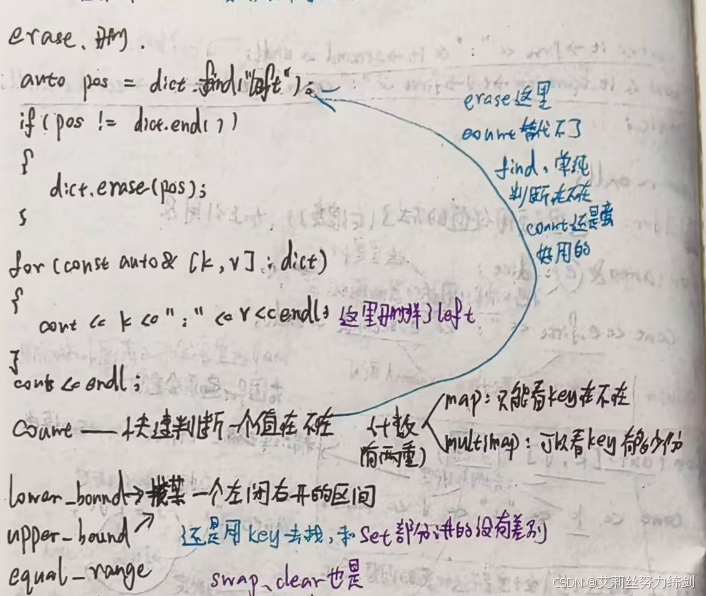 erase、删.
auto pos = dict.find("left");
if(pos != dict.end())
{
dict.erase(pos);
}
for(const auto& [k,v] : dict)
{
cout << k << ":" << v << endl; 这里删掉了left
}
cout << endl;
count —— 快速判断一个值在不在
erase这里
count替代不了
find，单纯
判断在不在
count还是蛮
好用的
计数
有两重
map：只能看key在不在
multimap：可以看key有多少份
lower_bound → 找某一个左闭右开的区间
upper_bound
还是用key去找，和set部分讲的没有差别
equal_range
swap、clear也是
CSDN @艾莉丝努力练剑